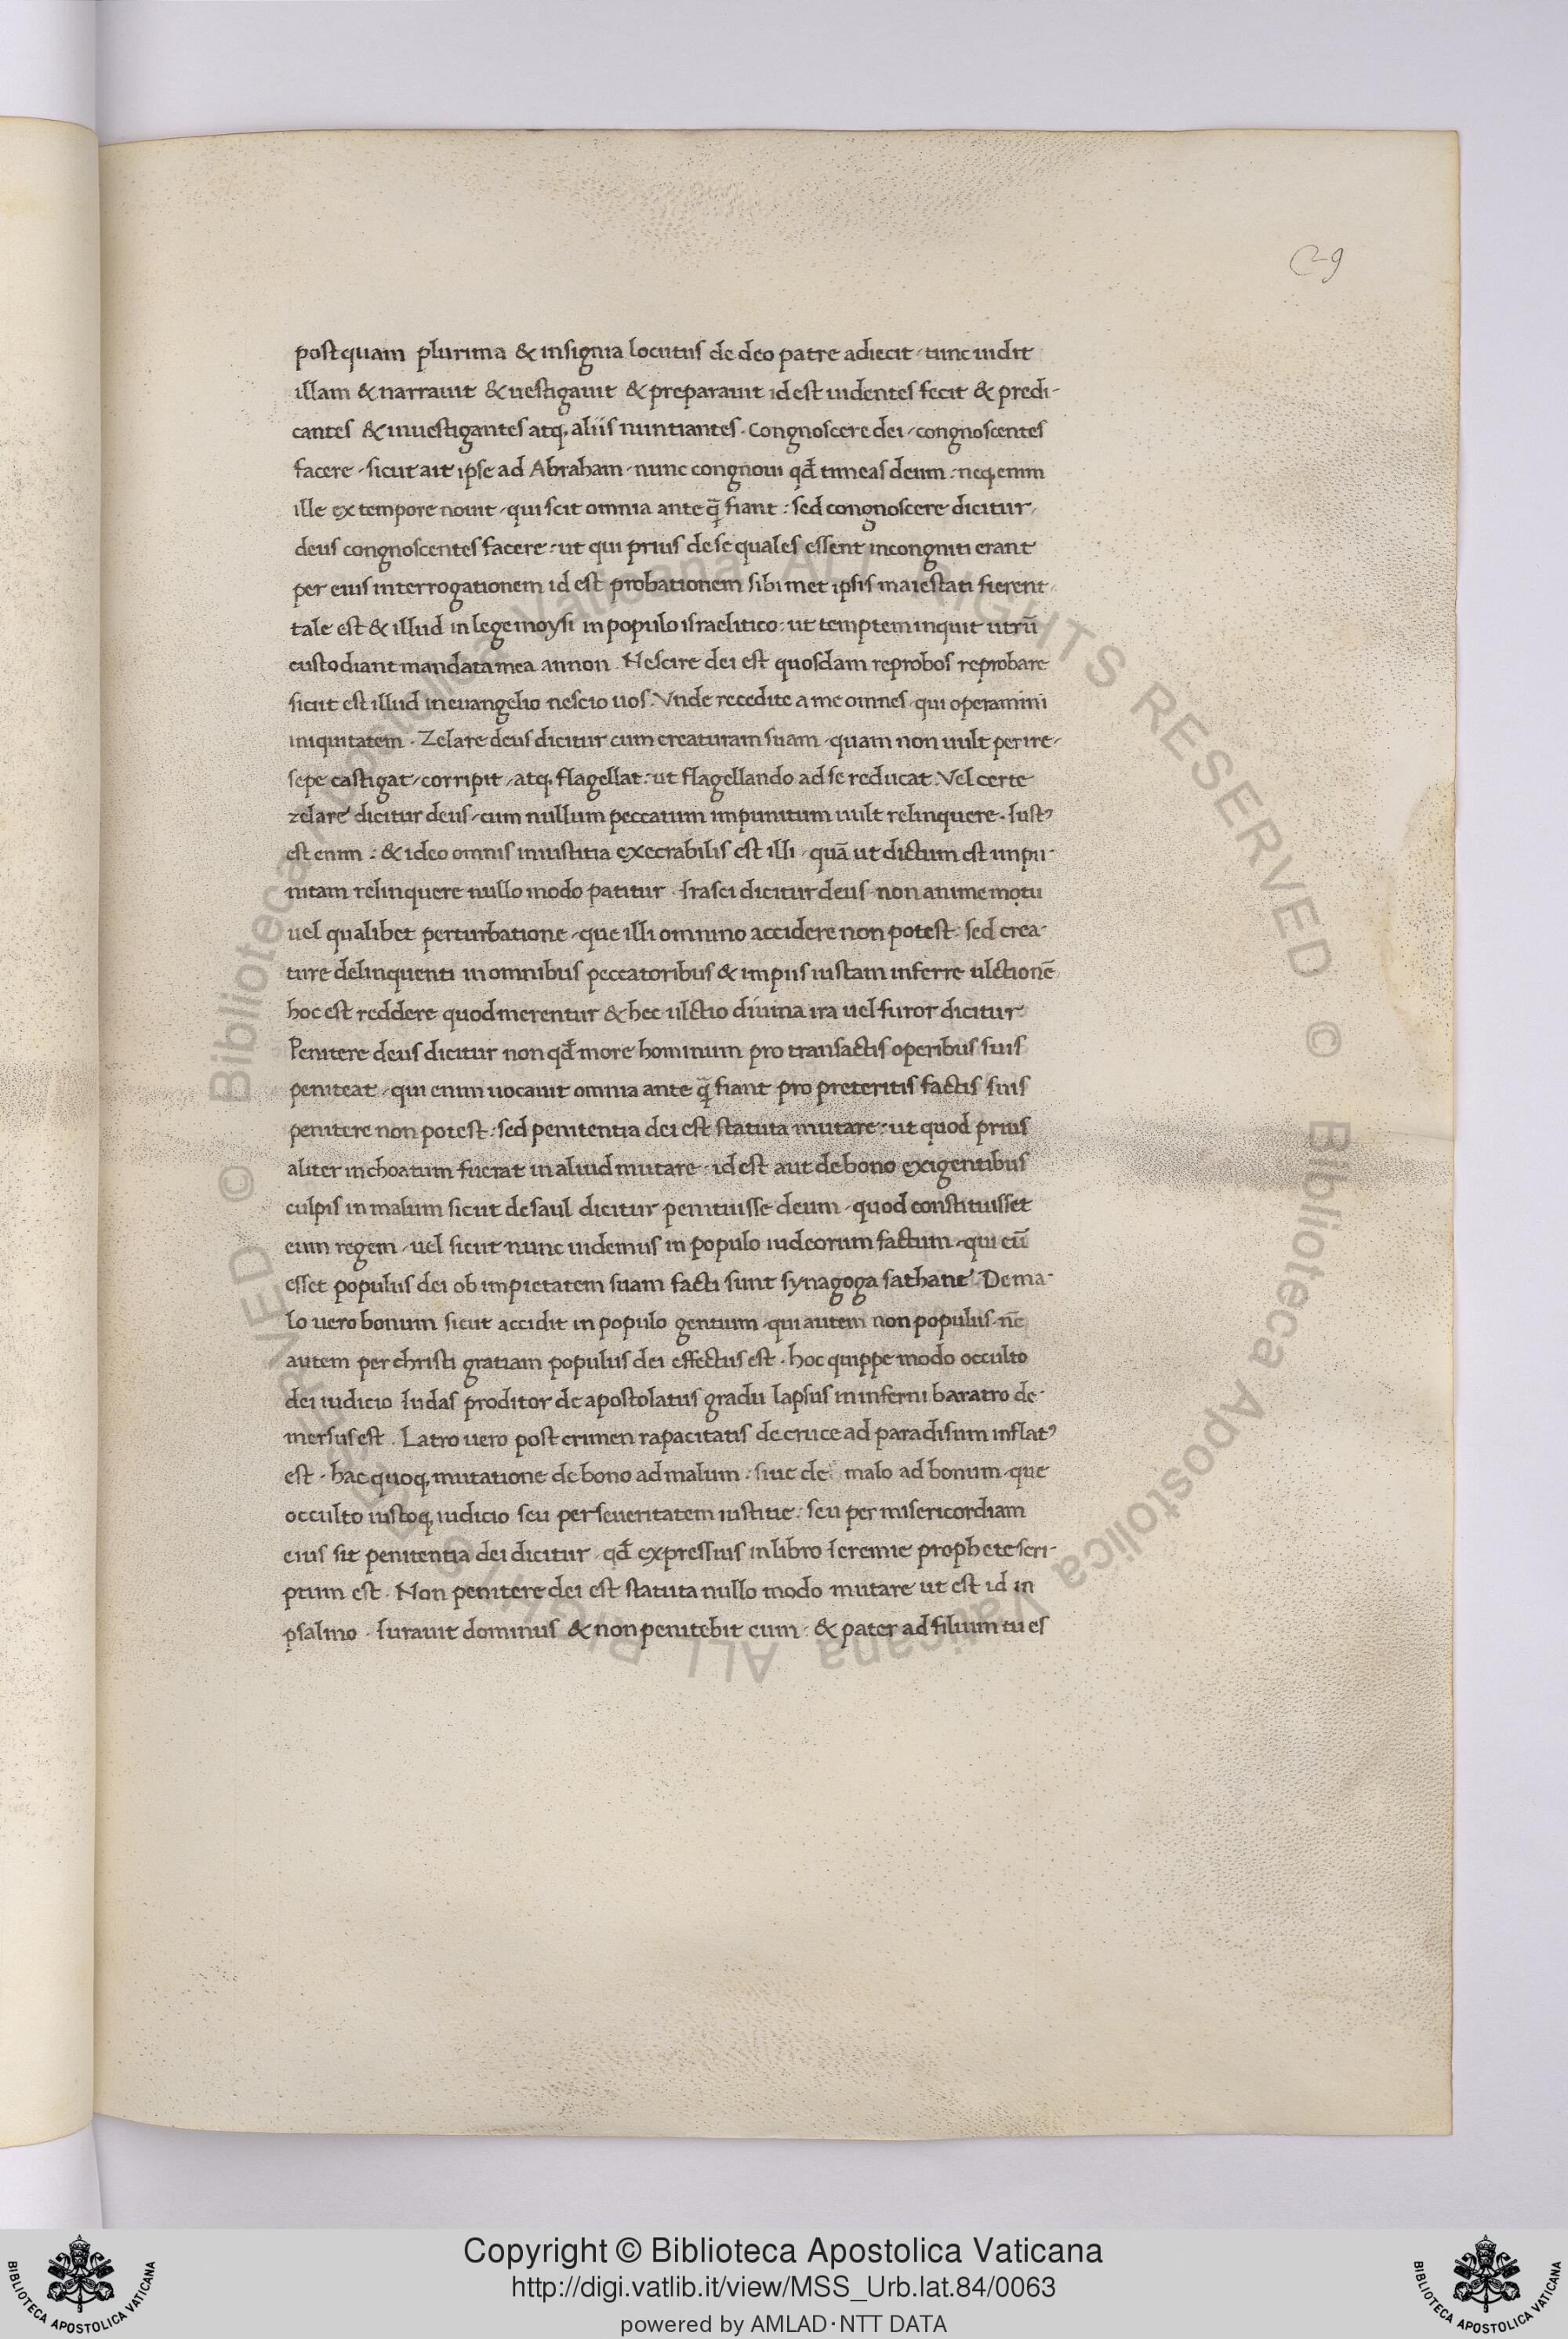 29
postquam plurima & insignia locutus de deo patre adiecit, tunc uidit
illam & narrauit & uestigauit & preparauit id est uidentes fecit & predi-
cantes & inuestigantes atq; aliis nuntiantes. Congnoscere dei, congnoscentes
facere, sicut ait ipse ad Abraham, nunc congnoui qđ timeas deum: neq; enim
ille ex tempore nouit, qui scit omnia ante q̃ fiant: sed congnoscere dicitur,
deus congnoscentes facere: ut qui prius de se quales essent incongniti erant
per eius interrogationem id est probationem sibimet ipsis maiestati fierent.
tale est & illud in lege moysi in populo israelitico: ut temptem inquit utrū
custodiant mandata mea annon. Nescire dei est quosdam reprobos reprobare
sicut est illud in euangelio nescio uos. Vnde recedite a me omnes, qui operamini
iniquitatem. Zelare deus dicitur cum creaturam suam, quam non uult perire,
sepe castigat, corripit, atq; flagellat: ut flagellando ad se reducat. Vel certe
zelare dicitur deus, cum nullum peccatum impunitum uult relinquere. Iustꝰ
est enim: & ideo omnis iniustitia execrabilis est illi, quā ut dictum est impu-
nitam relinquere nullo modo patitur. Irasci dicitur deus, non anime motu
uel qualibet perturbatione, que illi omnino accidere non potest: sed crea-
ture delinquenti in omnibus peccatoribus & impiis iustam inferre ulctionē
hoc est reddere quod merentur & hec ulctio diuina ira uel furor dicitur
Penitere deus dicitur non qđ more hominum pro transactis operibus suis
peniteat, qui enim uocauit omnia ante q̃ fiant pro preteritis factis suis
penitere non potest: sed penitentia dei est statuta mutare: ut quod prius
aliter inchoatum fuerat in aliud mutare, id est aut de bono exigentibus
culpis in malum sicut de saul dicitur penituisse deum, quod constituisset
eum regem, uel sicut nunc uidemus in populo iudeorum factum, qui cū
esset populus dei ob impietatem suam facti sunt synagoga sathane. De ma-
lo uero bonum sicut accidit in populo gentium, qui autem non populus, nc̄
autem per christi gratiam populus dei effectus est. hoc quippe modo occulto
dei iudicio Iudas proditor de apostolatus gradu lapsus in inferni baratro de-
mersus est. Latro uero post crimen rapacitatis de cruce ad paradisum inflatꝰ
est, hac quoq; mutatione de bono ad malum: siue de malo ad bonum, que
occulto iustoq; iudicio seu per seueritatem iustitie: seu per misericordiam
eius sit penitentia dei dicitur, qđ expressius in libro Ieremie prophete scri-
ptum est. Non penitere dei est statuta nullo modo mutare ut est id in
psalmo. Iurauit dominus & non penitebit eum: & pater ad filium tu es
© Biblioteca Apostolica Vaticana ALL RIGHTS RESERVED
© Biblioteca Apostolica Vaticana ALL RIGHTS RESERVED
Copyright © Biblioteca Apostolica Vaticana
http://digi.vatlib.it/view/MSS_Urb.lat.84/0063
powered by AMLAD·NTT DATA
BIBLIOTECA APOSTOLICA VATICANA
BIBLIOTECA APOSTOLICA VATICANA